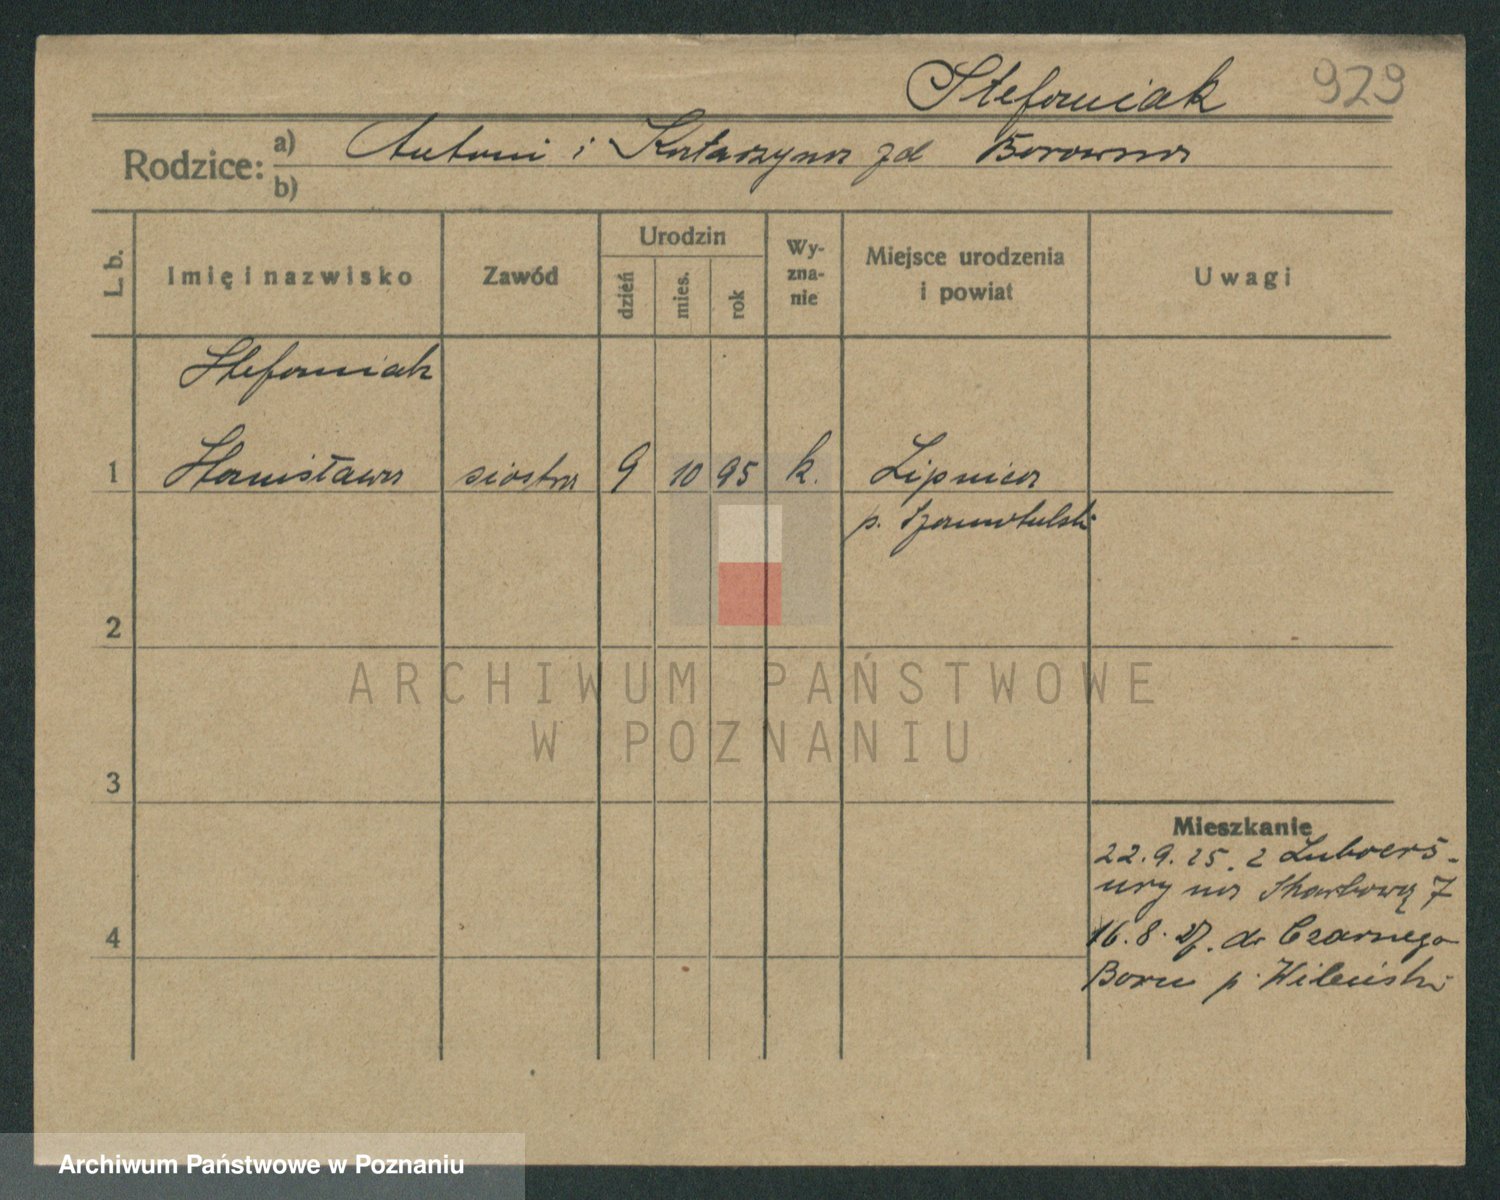 Stefaniak 929
Rodzice: a) Antoni i Katarzyna zd
b)
L. b. Imię i nazwisko Zawód Urodzin dzień mies. rok Wy-zna-nie Miejsce urodzenia i powiat Uwagi
Stefaniak
1 Stanisława siostra 9 10 95 k. Lipnica
p. Szamotulski
2
ARCHIWUM PAŃSTWOWE
W POZNANIU
3
Mieszkanie
22.9.25. z
na Skarbową 7
4 16.8.27. do Czarnego
Boru p. Wileński
Archiwum Państwowe w Poznaniu